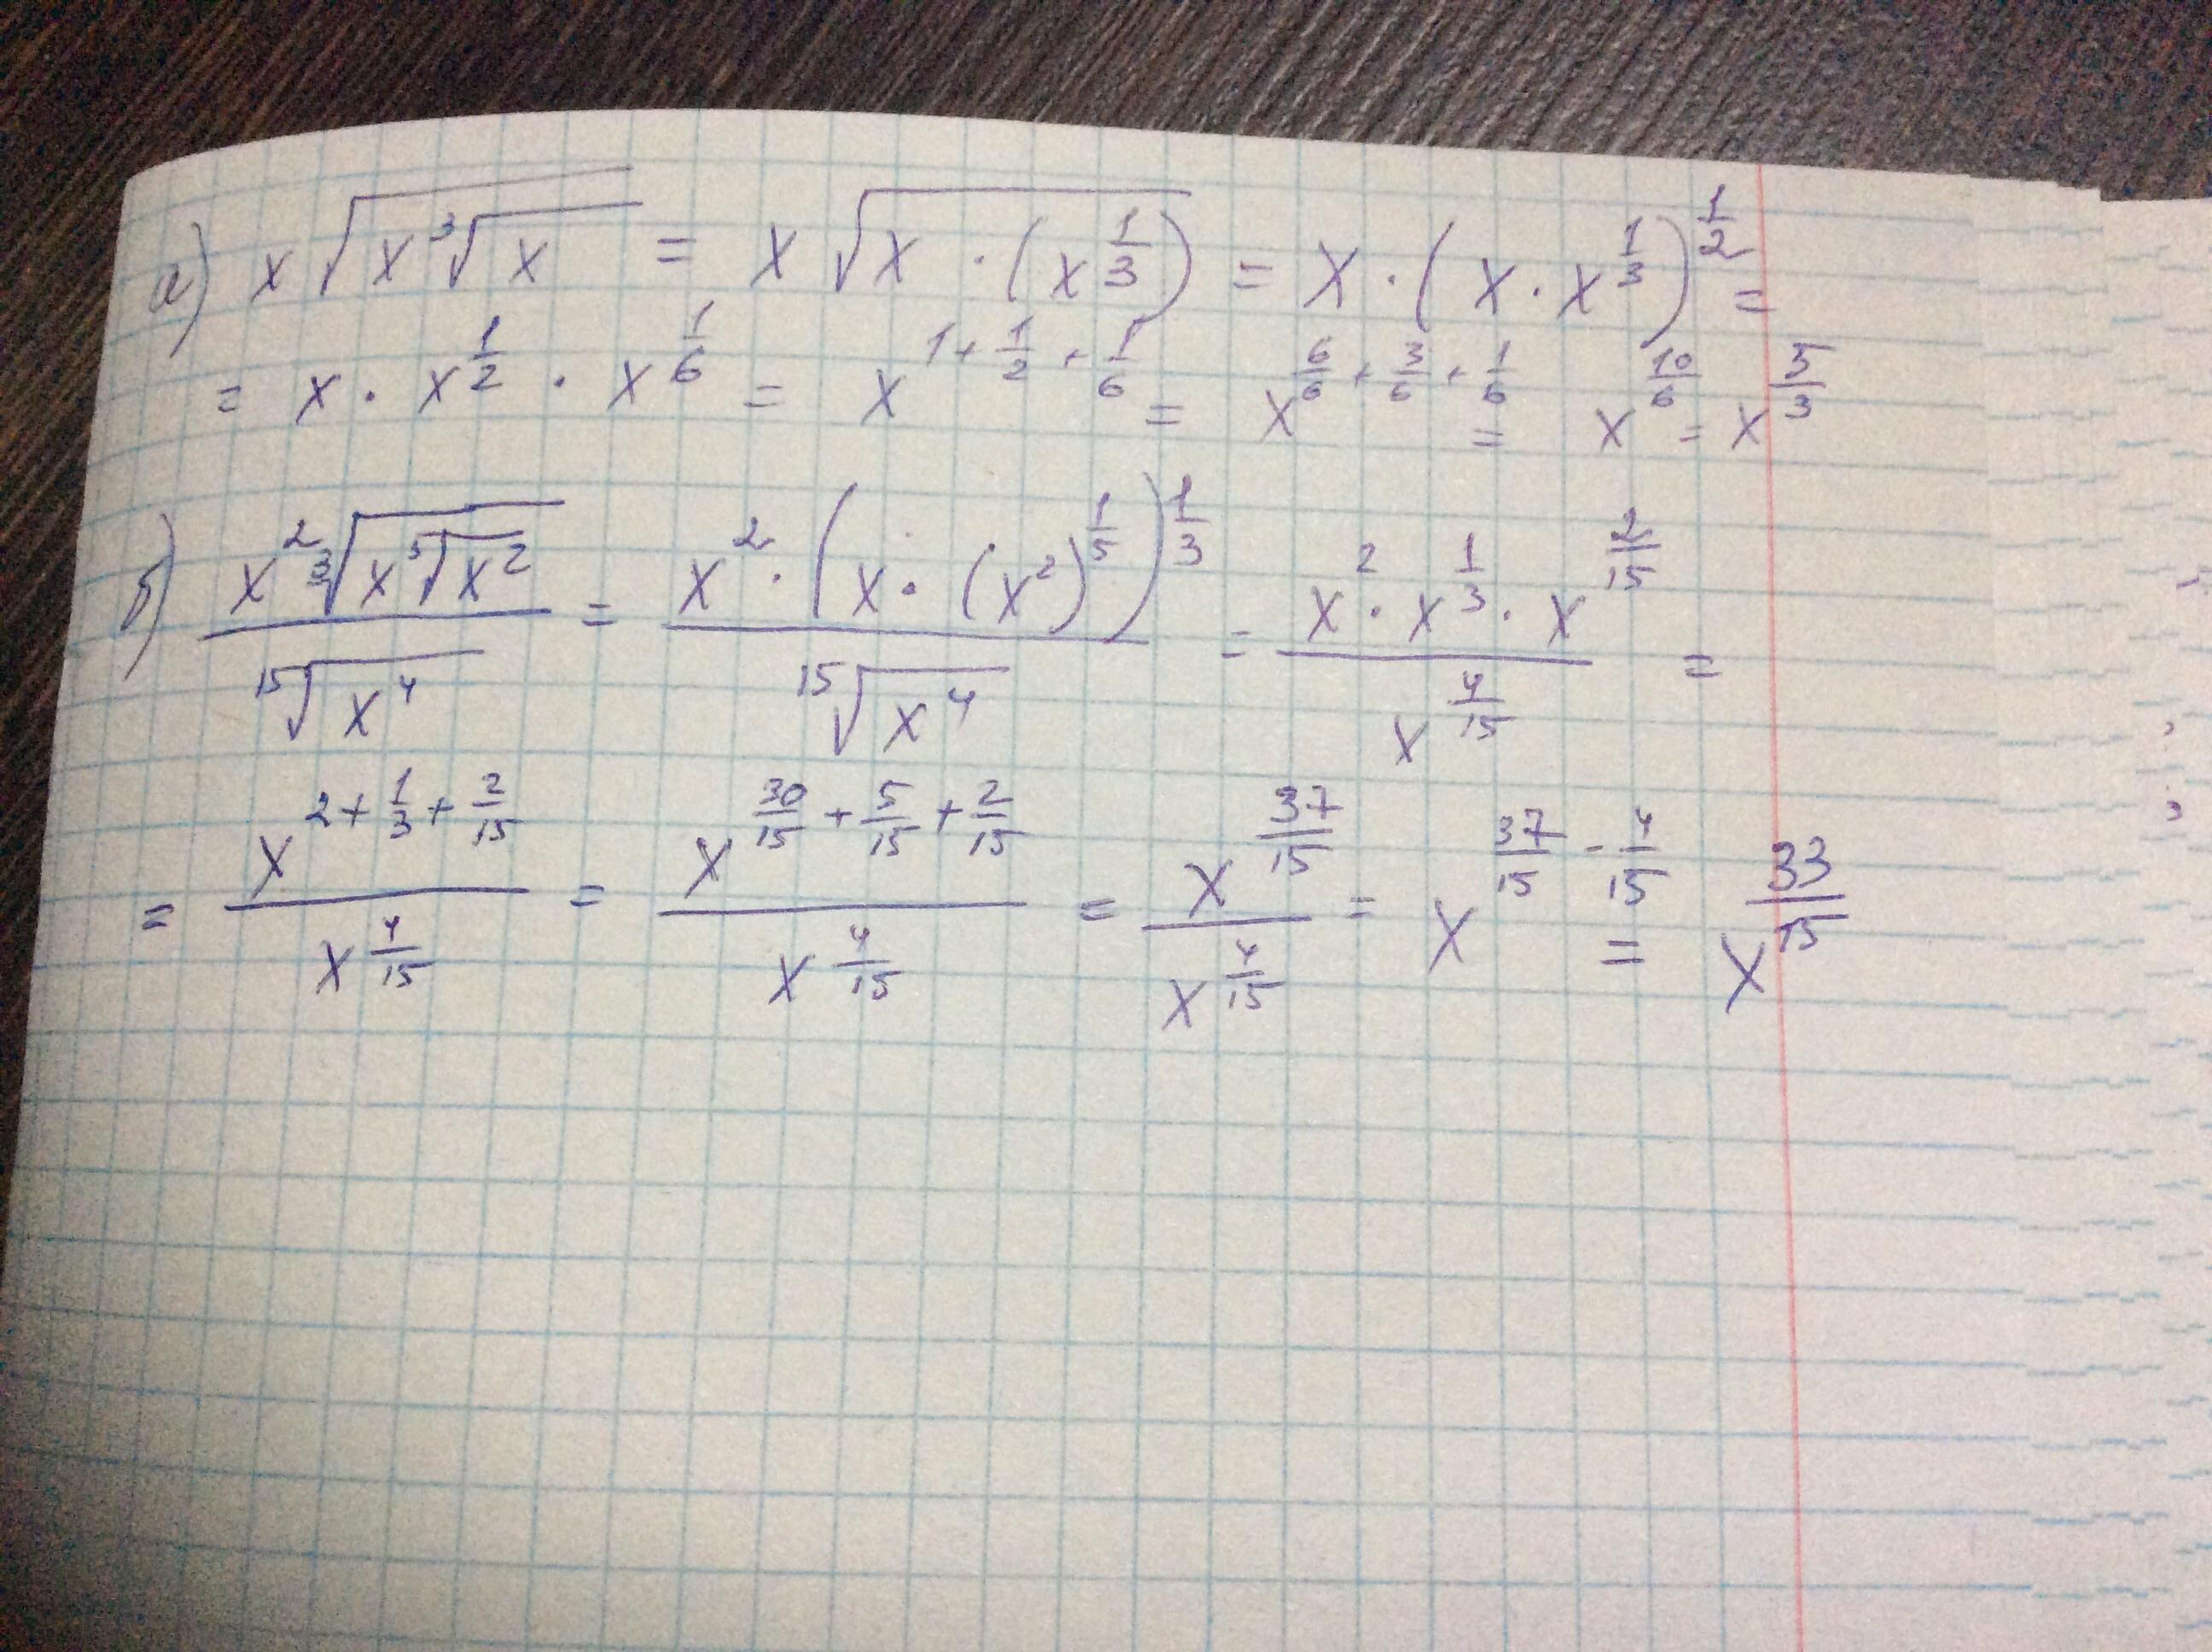 а) x√(x ∛x) = x√(x · (x^(1/3))) = x · (x · x^(1/3))^(1/2) =
= x · x^(1/2) · x^(1/6) = x^(1 + 1/2 + 1/6) = x^(6/6 + 3/6 + 1/6) = x^(10/6) = x^(5/3)
б) (x² ∛(x ⁵√(x²))) / (¹⁵√(x⁴)) = (x² · (x · (x²)^(1/5))^(1/3)) / (¹⁵√(x⁴)) = (x² · x^(1/3) · x^(2/15)) / (x^(4/15)) =
= (x^(2 + 1/3 + 2/15)) / (x^(4/15)) = (x^(30/15 + 5/15 + 2/15)) / (x^(4/15)) = (x^(37/15)) / (x^(4/15)) = x^(37/15 - 4/15) = x^(33/15)